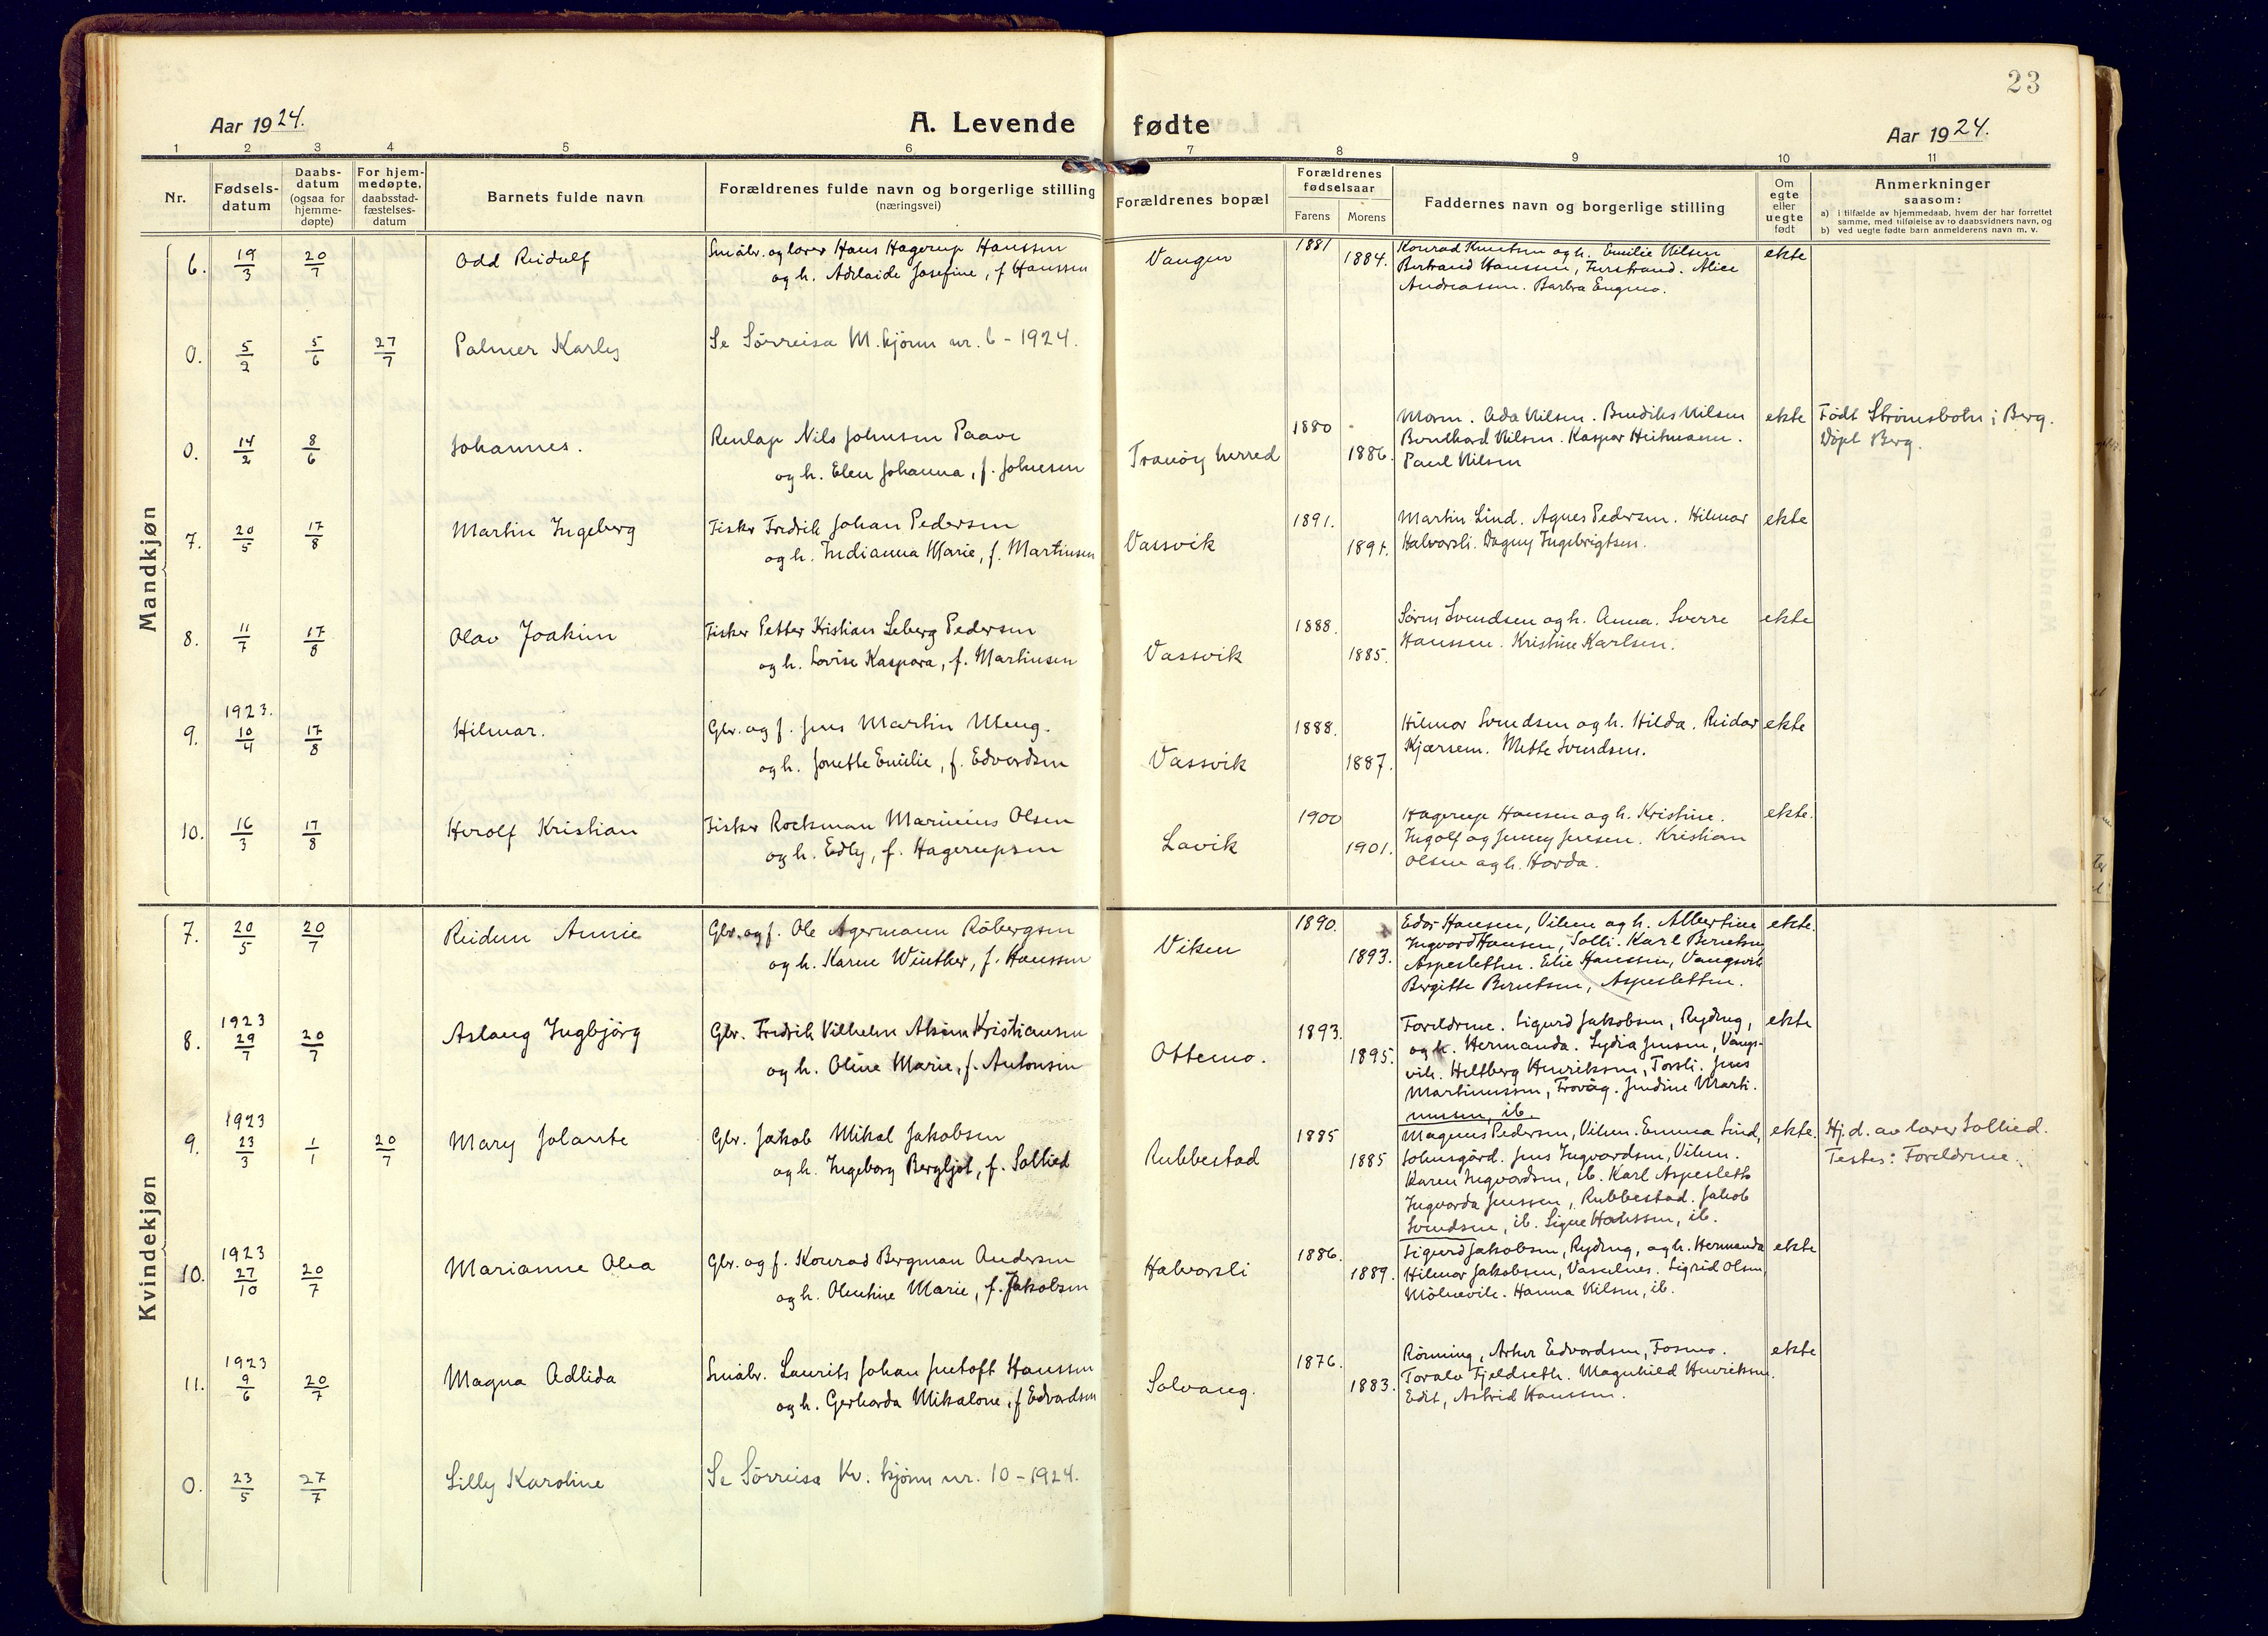 23
Aar 1924.
A. Levende fødte
Aar 1924.
1 2 3 4 5 6 7 8 9 10 11
Nr.
Fødsels-
datum
Daabs-
datum
(ogsaa for
hjemme-
døpte)
For hjem-
medøpte,
daabsstad-
fæstelses-
datum
Barnets fulde navn
Forældrenes fulde navn og borgerlige stilling
(næringsvei)
Forældrenes bopæl
Forældrenes
fødselsaar
Farens Morens
Faddernes navn og borgerlige stilling
Om
egte
eller
uegte
født
Anmerkninger
saasom:
a) i tilfælde av hjemmedaab, hvem der har forrettet
samme, med tilføielse av to daabsvidners navn, og
b) ved uegte fødte barn anmelderens navn m. v.
Mandkjøn
6. 19/3 20/7 Odd Reidulf
Småbr. og lærer Hans Hagerup Hanssen
og h. Adelaide Josefine, f Hanssen
Vangen 1881 1884.
Konrad Knutsen og h. Emilie Nilsen
Bertrand Hanssen, Furstrand. Alice
Andreassen. Barbra Engmo.
ekte
0. 5/2 5/6 27/7 Palmer Karly
Se Sörreisa M. kjönn nr. 6 - 1924.
0. 14/2 8/6 Johannes.
Renlap Nils Johnsen Paave
og h. Elen Johanna, f. Johnsen
Tranöy herred 1880 1886.
Moren. Ada Nilsen. Bendiks Nilsen
Bernthard Nilsen. Kaspar Heitmann.
Paul Nilsen
ekte
Född Strömsbotn i Berg.
Döpt Berg.
7. 20/5 17/8 Martin Ingeberg
Fisker Fredrik Johan Pedersen
og h. Indianna Marie, f. Martinsen
Vassvik 1891. 1891.
Martin Lind. Agnes Pedersen. Hilmar
Halvorsli. Dagny Ingebrigtsen.
ekte
8. 11/7 17/8 Olav Joakim
Fisker Petter Kristian Seberg Pedersen
og h. Lovise Kaspara, f. Martinsen
Vassvik 1888. 1885.
Sören Svendsen og h. Anna. Sverre
Hanssen. Kristine Karlsen.
ekte
9. 1923. 10/4 17/8 Hilmar.
Gbr. og f. Jens Martin Uteng.
og h. Jonette Emilie, f. Edvardsen
Vassvik 1888. 1887.
Hilmar Svendsen og h. Hilda. Reidar
Kjærsem. Mette Svendsen.
ekte
10. 16/3 17/8 Herolf Kristian
Fisker Rockman Marinius Olsen
og h. Edly, f. Hagerupsen
Lavik 1900 1901.
Hagerup Hansen og h. Kristine.
Ingolf og Jenny Jensen. Kristian
Olsen og h. Harda.
ekte.
Kvindekjøn
7. 20/5 20/7 Reidun Annie
Gbr. og f. Ole Agermann Röbergsen
og h. Karen Winther, f. Hanssen
Viken 1890. 1893.
Edor Hansen, Viken og h. Albertine
Ingvard Hansen, Solli. Karl Berntsen
Aspesletten. Elie Hanssen, Vangsvik
Bergitte Berntsen, Aspesletten.
ekte.
8. 1923 29/7 20/7 Aslaug Ingbjörg
Gbr. Fredrik Vilhelm Aksim Kristiansen
og h. Oline Marie, f. Antonsen
Ottemo. 1893. 1895.
Foreldrene. Sigurd Jakobsen, Rydeng,
og h. Hermanda. Lydia Jensen, Vangs-
vik. Heltberg Henriksen, Torsli. Jens
Martinussen, Trovåg. Jendine Marti-
nussen, ib.
ekte
9. 1923 23/3 1/1 20/7 Mary Jolante
Gbr. Jakob Mikal Jakobsen
og h. Ingeborg Bergljot, f. Sollied
Rubbestad 1885 1885
Magnus Pedersen, Viken. Emma Lind,
Johnsgård. Jens Ingvardsen, Viken.
Karen Ingvardsen, ib. Karl Aspeslett
Ingvarda Jenssen, Rubbestad. Jakob
Svendsen, ib. Signe Hanssen, ib.
ekte.
Hj. d. av lærer Sollied.
Testes: Foreldrene.
10. 1923 27/10 20/7 Marianne Olea
Gbr. og f. Konrad Bergman Andersen
og h. Olentine Marie, f. Jakobsen
Halvorsli 1886. 1889.
Sigurd Jakobsen, Rydeng, og h. Hermanda
Hilmar Jakobsen, Vaselnes. Sigrid Olsen,
Mölnevik. Hanna Nilsen, ib.
ekte
11. 1923 9/6 20/7 Magna Adlida
Småbr. Laurits Johan Jentoft Hanssen
og h. Gerharda Mikalone, f Edvardsen
Solvang. 1876. 1883.
Rönning, Arthur Edvardsen, Fosmo.
Toralv Fjeldseth. Magnhild Henriksen.
Edit, Astrid Hanssen.
ekte
0. 23/5 27/7 Lilly Karoline
Se Sörreisa Kv. kjönn nr. 10 - 1924.